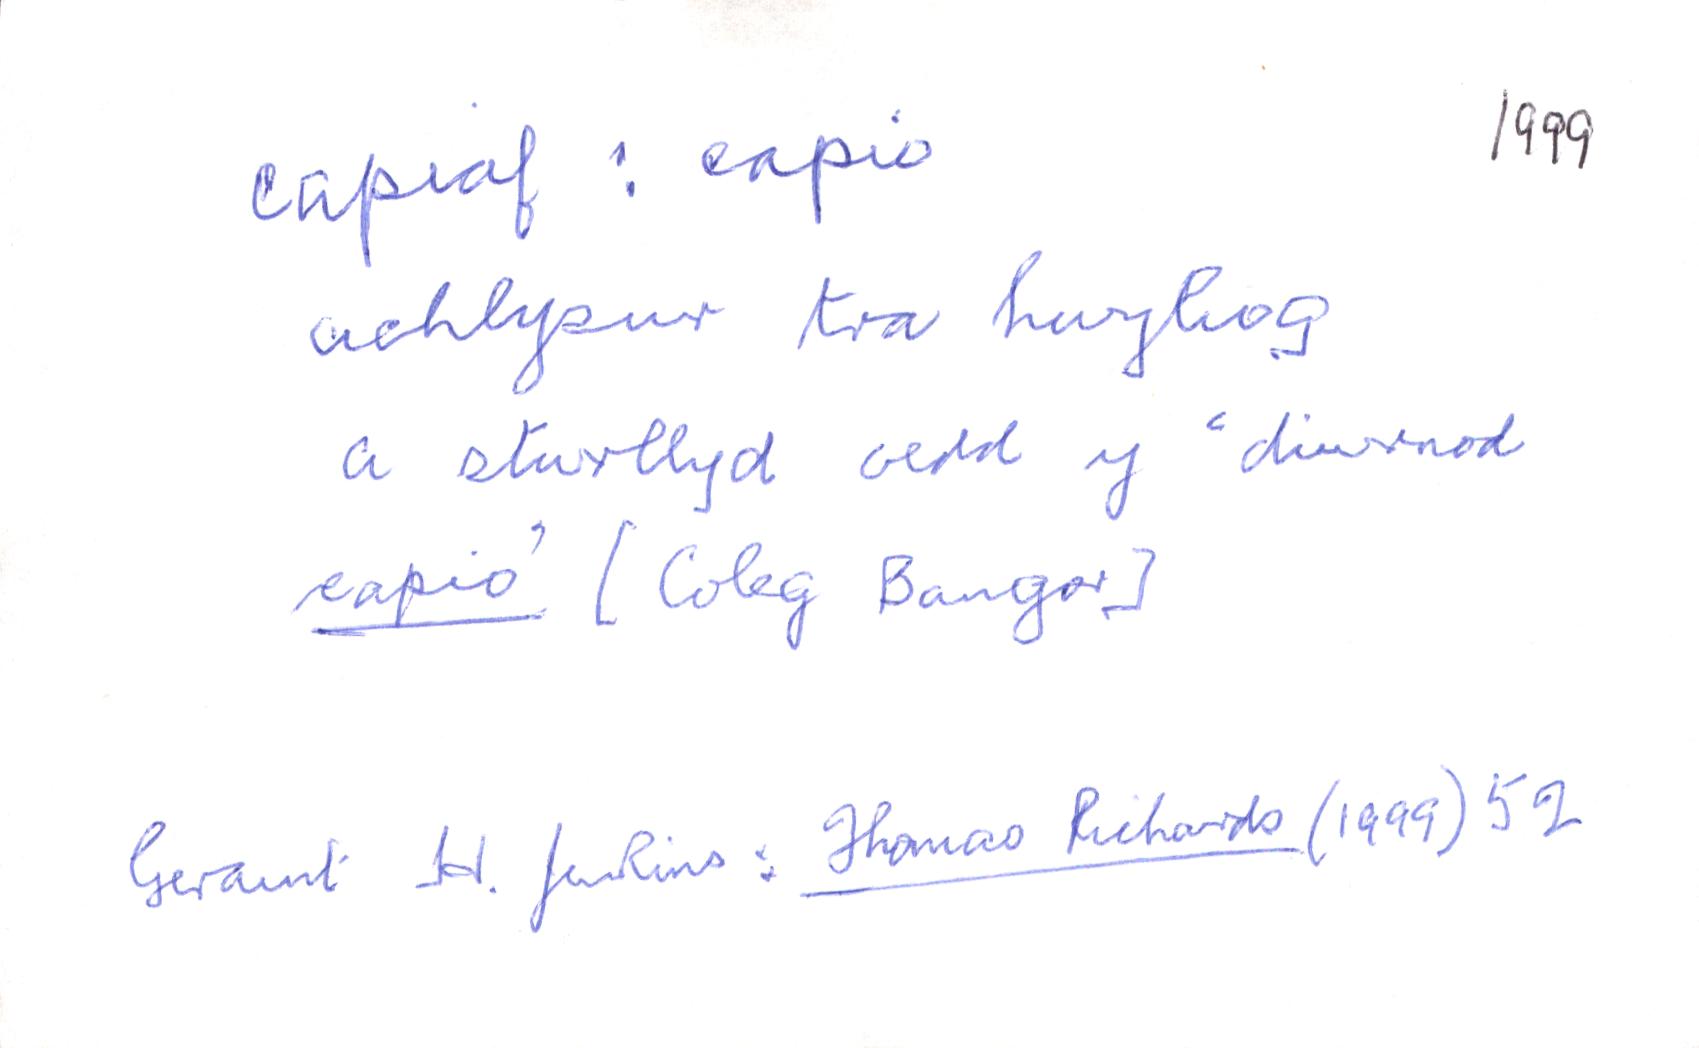 1999
capiaf : capio
achlysur tra hwyliog
a stwrllyd oedd y 'diwrnod
capio' [Coleg Bangor]
Geraint H. Jenkins : Thomas Richards (1999) 52